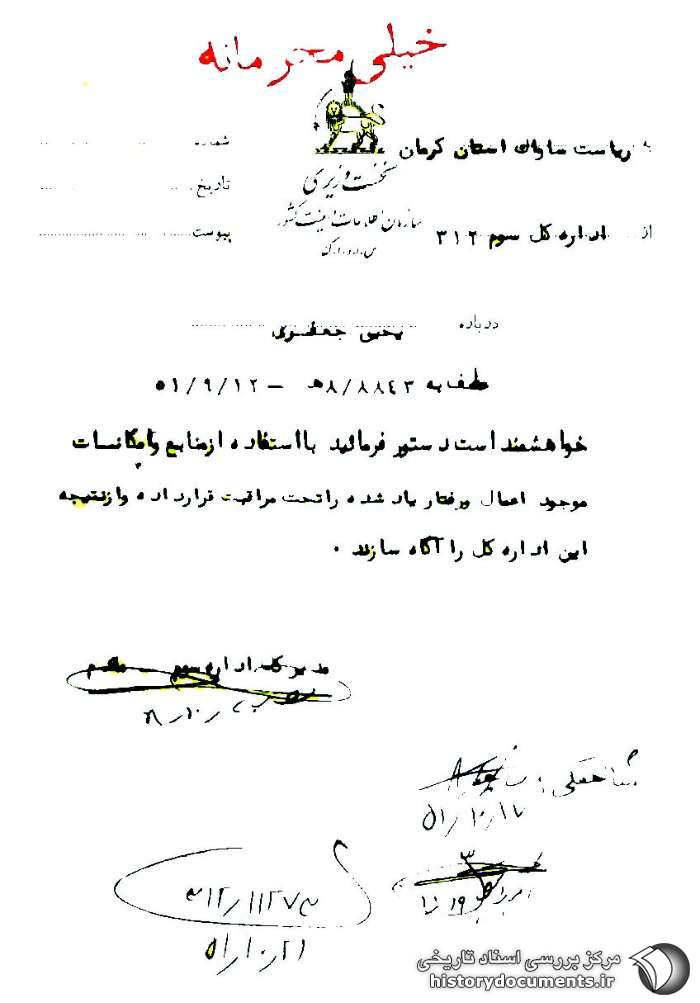 خیلی محرمانه
به ریاست ساواك استان کرمان
شماره
نخست وزیری
تاریخ
سازمان اطلاعات و امنیت کشور
س.ا.و.ا.ک
از اداره کل سوم ۳۱۲
پیوست
درباره یحیی جعفری
عطف به ۸/۸۸۴۳هـ – ۵۱/۹/۱۲
خواهشمند است دستور فرمائید با استفاده از منابع و امکانات
موجود اعمال و رفتار یاد شده را تحت مراقبت قرار داده و از نتیجه
این اداره کل را آگاه سازند .
مدیر کل اداره سوم – مقدم
۵۱/۱۰/۱۷
۳۱۲/۱۱۲۷۳
۵۱/۱۰/۲۱
مرکز بررسی اسناد تاریخی
historydocuments.ir